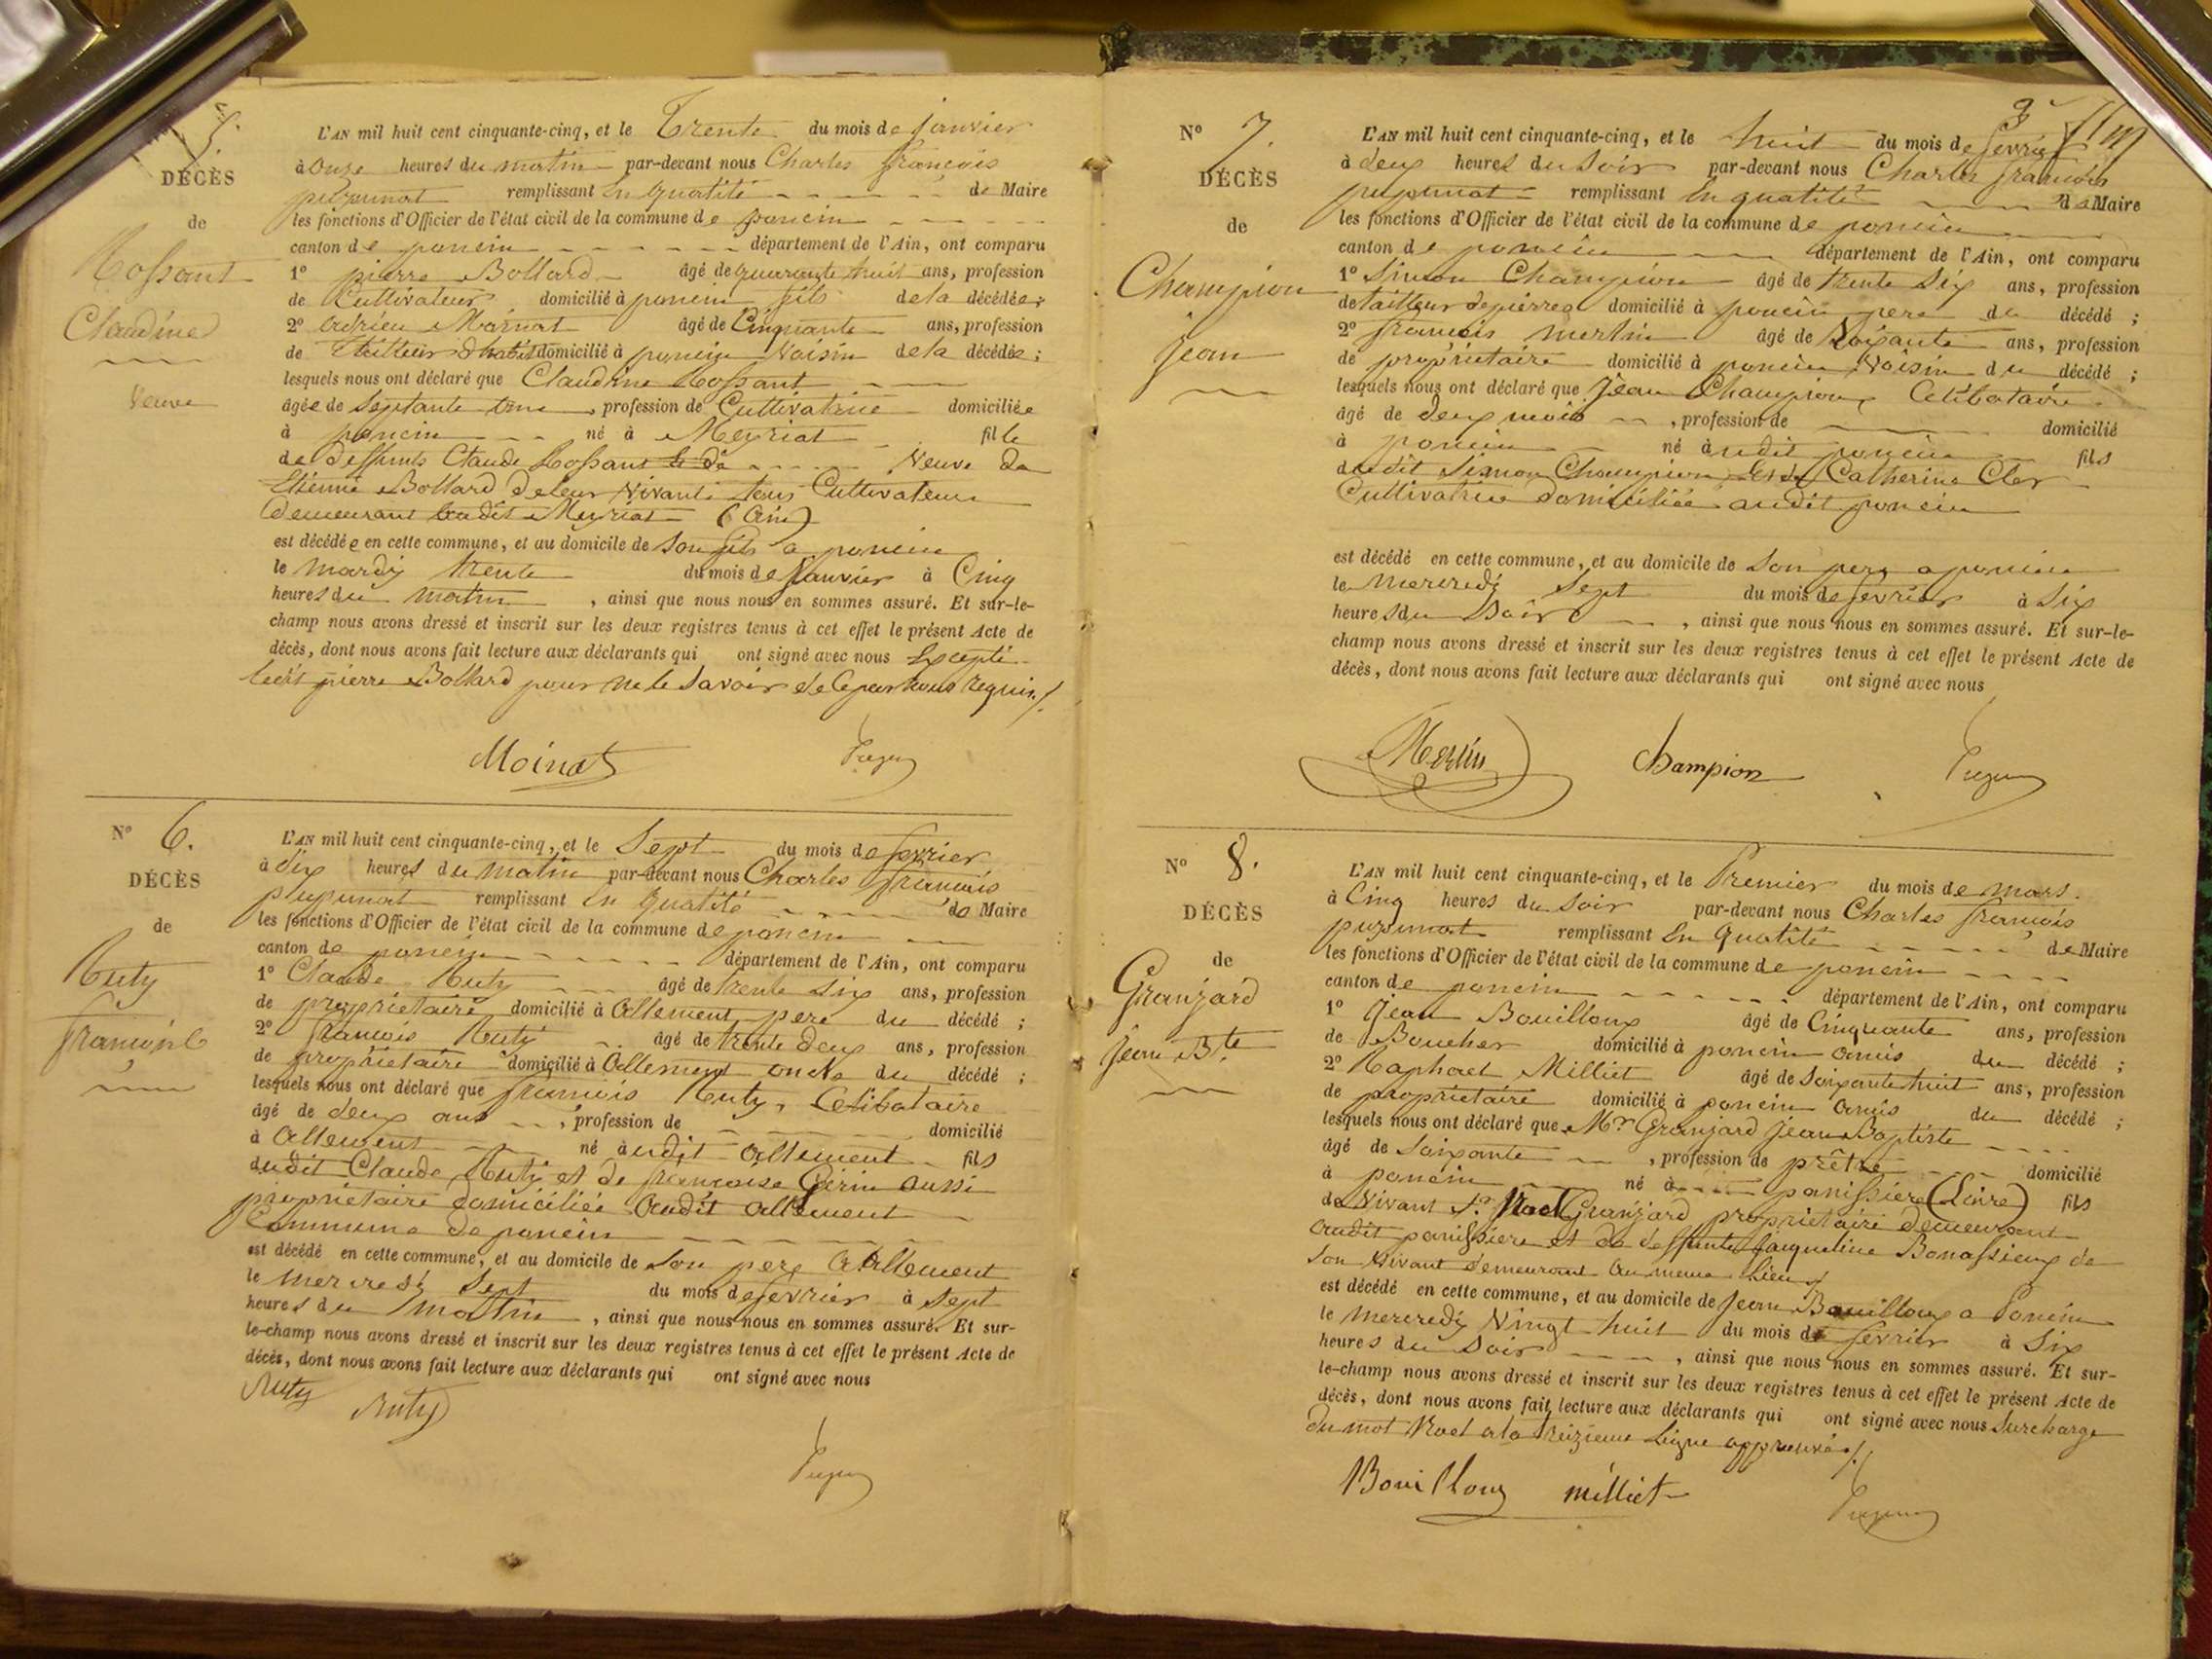 5.
DÉCÈS
de
Rossant
Claudine
Veuve
L'AN mil huit cent cinquante-cinq, et le Trente du mois de janvier
à onze heures du matin par-devant nous Charles françois
remplissant En qualité de Maire
les fonctions d'Officier de l'état civil de la commune de poncin
canton de poncin département de l'Ain, ont comparu
1º pierre Bollard âgé de quarante huit ans, profession
de Cultivateur domicilié à poncin fils de la décédée ;
2º âgé de Cinquante ans, profession
de d'habits domicilié à poncin Voisin de la décédée ;
lesquels nous ont déclaré que Claudine Rossant
âgée de Septante profession de Cultivatrice domiciliée
à poncin né à Meyriat fille
de deffunts Claude Rossant et de Veuve de
Etienne Bollard de leur vivant tous Cultivateurs
demeurant audit Meyriat (Ain)
est décédée en cette commune, et au domicile de son fils a poncin
le mardy trente du mois de janvier à Cinq
heures du matin , ainsi que nous nous en sommes assuré. Et sur-le-
champ nous avons dressé et inscrit sur les deux registres tenus à cet effet le présent Acte de
décès, dont nous avons fait lecture aux déclarants qui ont signé avec nous Excepté
ledit pierre Bollard pour ne le savoir de ce par nous requis ./.
Moinat
Nº 6.
DÉCÈS
de
Ruty
françois
L'AN mil huit cent cinquante-cinq, et le Sept du mois de fevrier
à dix heures du matin par-devant nous Charles françois
remplissant En qualité de Maire
les fonctions d'Officier de l'état civil de la commune de poncin
canton de poncin département de l'Ain, ont comparu
1º Claude Ruty âgé de trente Six ans, profession
de proprietaire domicilié à Allement pere du décédé ;
2º françois Ruty âgé de trente deux ans, profession
de proprietaire domicilié à Allement oncle du décédé ;
lesquels nous ont déclaré que françois Ruty, Celibataire
âgé de deux ans , profession de domicilié
à Allement né à udit Allement fils
dudit Claude Ruty et de françoise Gerin aussi
proprietaire domiciliée audit Allement
Commune de poncin
est décédé en cette commune, et au domicile de son pere a Allement
le mercredi Sept du mois de fevrier à sept
heures du matin , ainsi que nous nous en sommes assuré. Et sur-
le-champ nous avons dressé et inscrit sur les deux registres tenus à cet effet le présent Acte de
décès, dont nous avons fait lecture aux déclarants qui ont signé avec nous
Ruty
Ruty
3
Nº 7.
DÉCÈS
de
Champion
jean
L'AN mil huit cent cinquante-cinq, et le huit du mois de fevrier
à deux heures du soir par-devant nous Charles françois
remplissant En qualité de Maire
les fonctions d'Officier de l'état civil de la commune de poncin
canton de poncin département de l'Ain, ont comparu
1º Simon Champion âgé de trente Six ans, profession
de tailleur de pierres domicilié à poncin pere du décédé ;
2º françois merlin âgé de Soixante ans, profession
de proprietaire domicilié à poncin Voisin du décédé ;
lesquels nous ont déclaré que Jean Champion, Celibataire
âgé de deux mois , profession de domicilié
à poncin né à udit poncin fils
dudit Simon Champion et de Catherine Cler
Cultivatrice domiciliée audit poncin
est décédé en cette commune, et au domicile de son pere a poncin
le mercredi Sept du mois de fevrier à Six
heures du Soir , ainsi que nous nous en sommes assuré. Et sur-le-
champ nous avons dressé et inscrit sur les deux registres tenus à cet effet le présent Acte de
décès, dont nous avons fait lecture aux déclarants qui ont signé avec nous
Merlin champion
Nº 8.
DÉCÈS
de
Granjard
Jean Bte
L'AN mil huit cent cinquante-cinq, et le Premier du mois de mars.
à Cinq heures du Soir par-devant nous Charles françois
remplissant En qualité de Maire
les fonctions d'Officier de l'état civil de la commune de poncin
canton de poncin département de l'Ain, ont comparu
1º Jean Bouilloux âgé de Cinquante ans, profession
de Boucher domicilié à poncin amis du décédé ;
2º Raphael Milliet âgé de soixante huit ans, profession
de proprietaire domicilié à poncin amis du décédé ;
lesquels nous ont déclaré que Mr Granjard Jean Baptiste
âgé de Soixante , profession de prêtre domicilié
à poncin né à panissiere (Loire) fils
de Vivant Sr. Noel Granjard proprietaire demeurant
audit panissiere et de deffunte Jacqueline Bonassieux de
son vivant demeurant au meme Lieu
est décédé en cette commune, et au domicile de Jean Bouilloux a Poncin
le mercredy Vingt huit du mois de fevrier à Six
heures du Soir , ainsi que nous nous en sommes assuré. Et sur-
le-champ nous avons dressé et inscrit sur les deux registres tenus à cet effet le présent Acte de
décès, dont nous avons fait lecture aux déclarants qui ont signé avec nous Surcharge
du mot Noel a la treizieme Ligne approuvée ./.
Bouilloux milliet